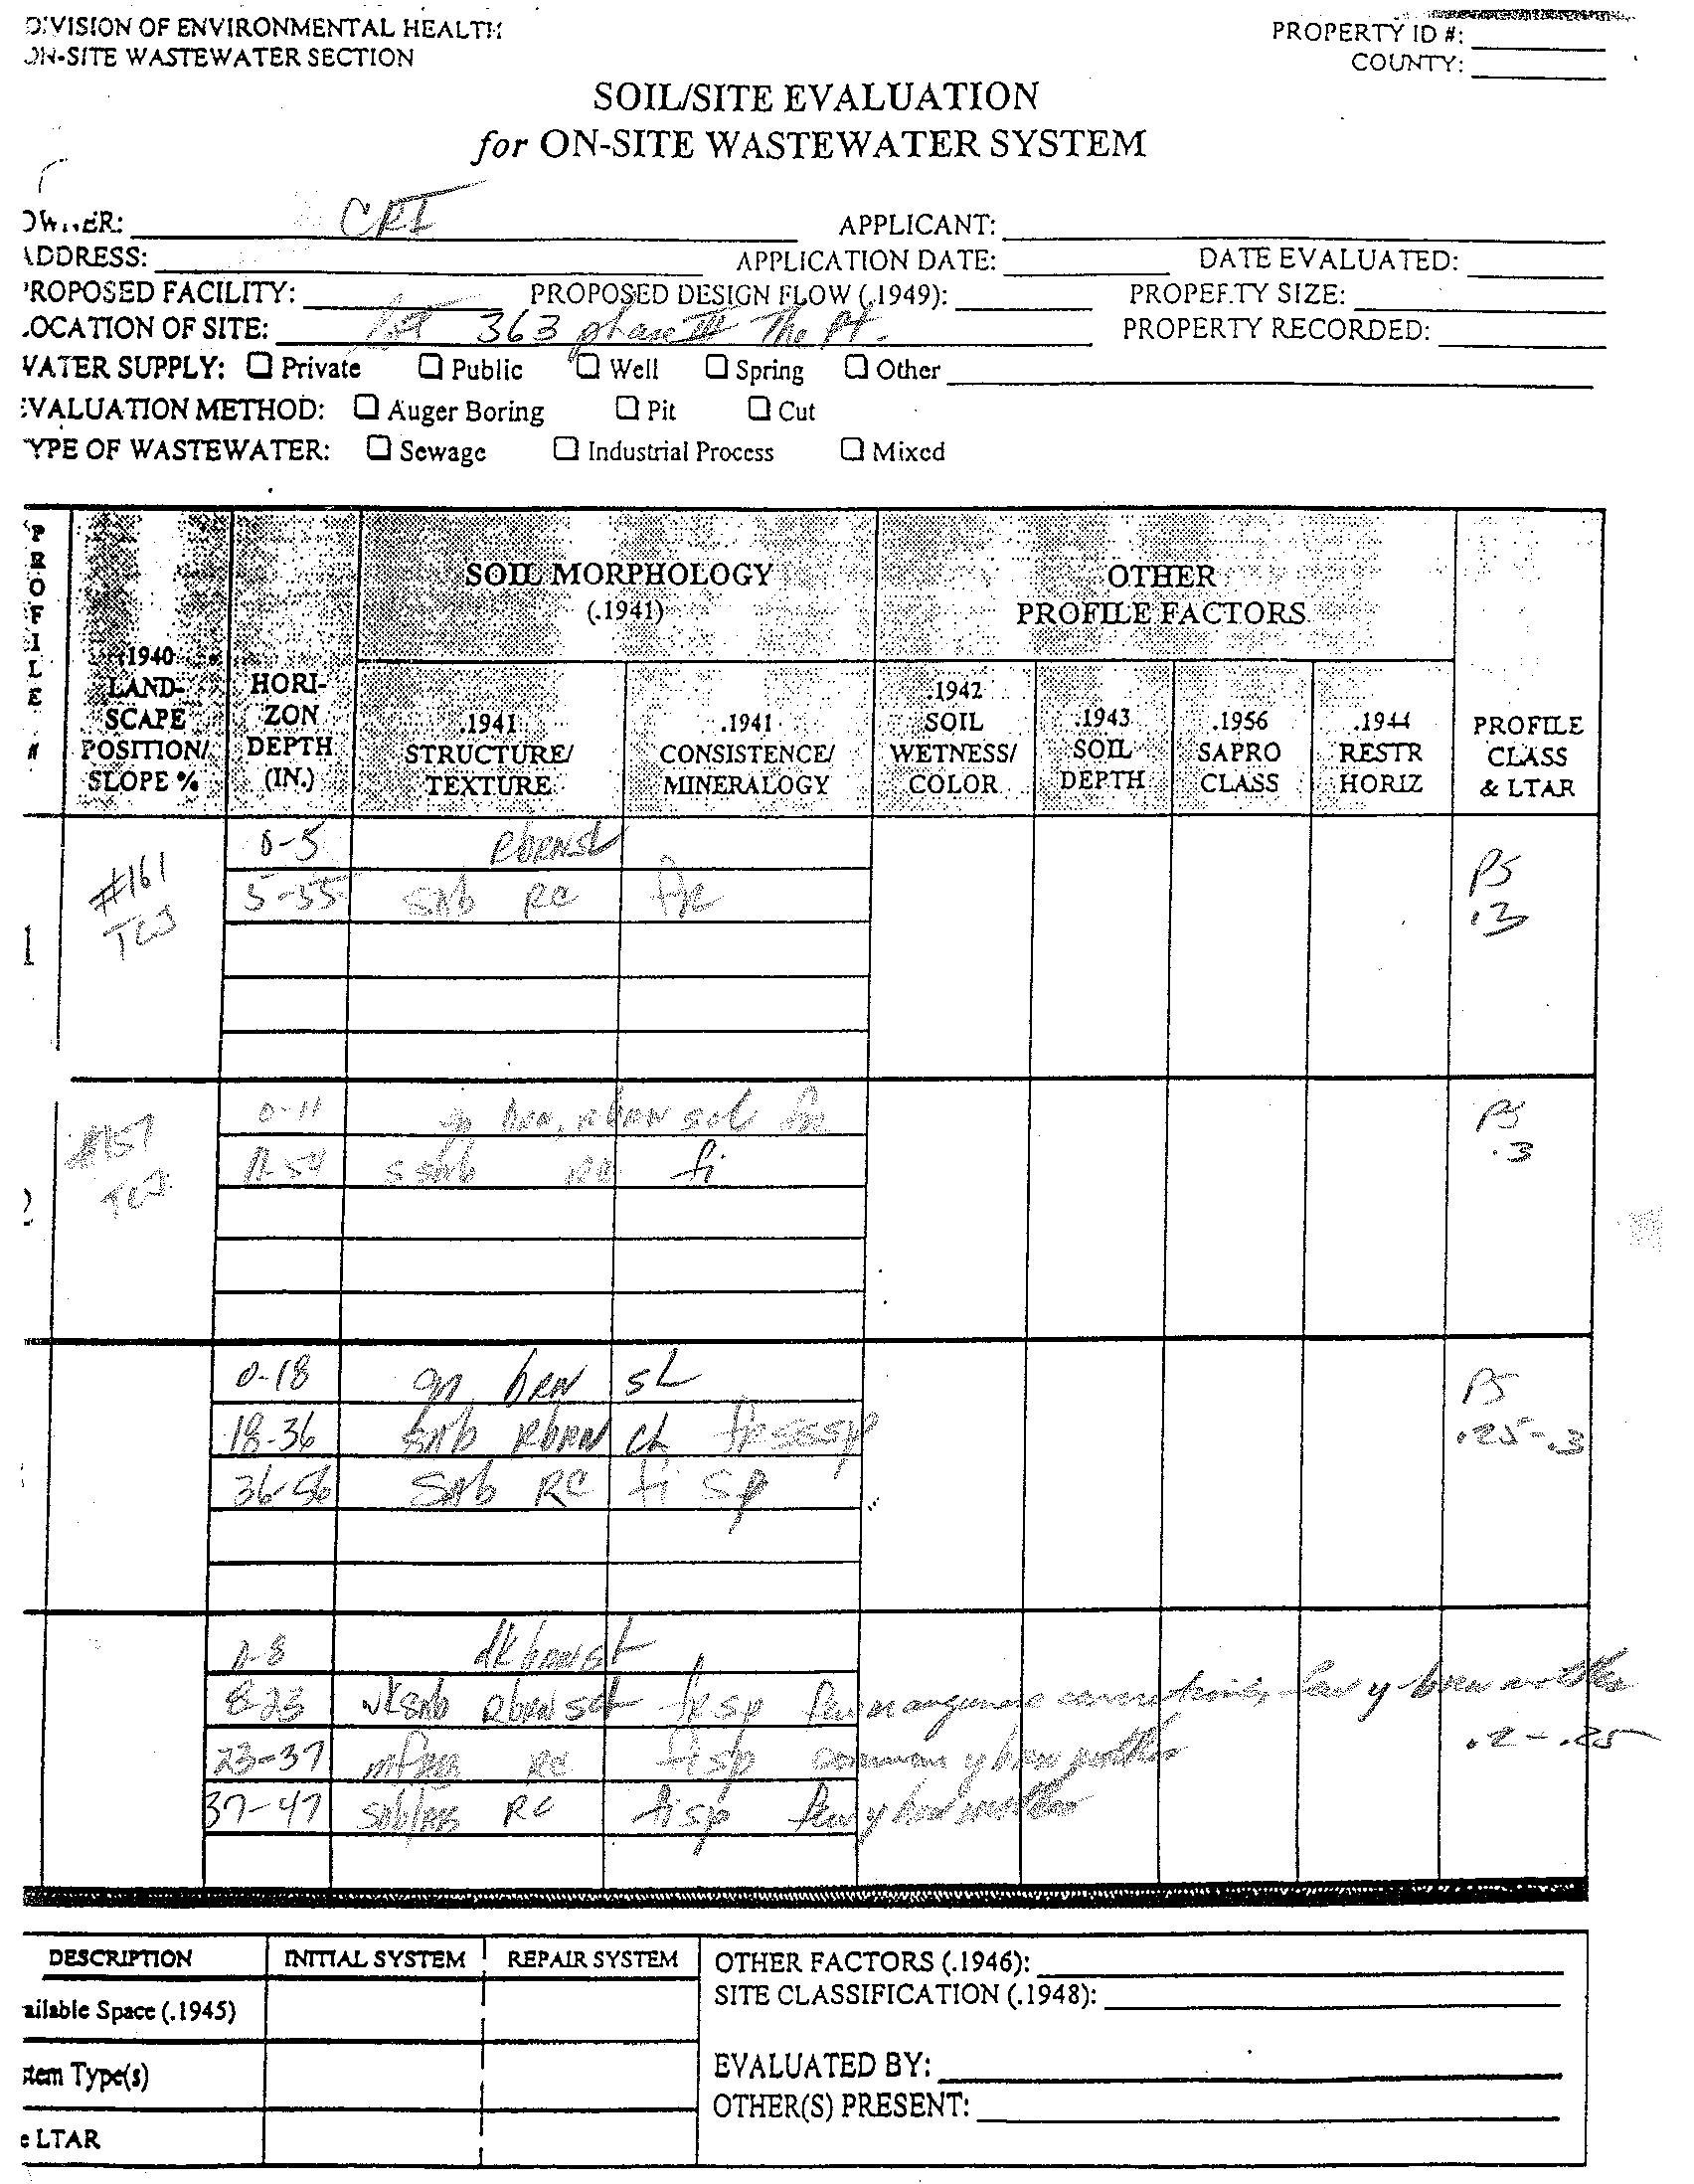 DIVISION OF ENVIRONMENTAL HEALTH
ON-SITE WASTEWATER SECTION
PROPERTY ID #:
COUNTY:
SOIL/SITE EVALUATION
for ON-SITE WASTEWATER SYSTEM
OWNER: CRI APPLICANT:
ADDRESS: APPLICATION DATE: DATE EVALUATED:
PROPOSED FACILITY: PROPOSED DESIGN FLOW (.1949): PROPERTY SIZE:
LOCATION OF SITE: Lot 363 phase The Pt. PROPERTY RECORDED:
WATER SUPPLY: Private Public Well Spring Other
EVALUATION METHOD: Auger Boring Pit Cut
TYPE OF WASTEWATER: Sewage Industrial Process Mixed
PROFILE #
.1940 LAND-SCAPE POSITION/ SLOPE %
HORI-ZON DEPTH (IN.)
SOIL MORPHOLOGY (.1941)
.1941 STRUCTURE/ TEXTURE
.1941 CONSISTENCE/ MINERALOGY
OTHER PROFILE FACTORS
.1942 SOIL WETNESS/ COLOR
.1943 SOIL DEPTH
.1956 SAPRO CLASS
.1944 RESTR HORIZ
PROFILE CLASS & LTAR
1 #161 TCJ
0-5 RbRNSL PS
5-35 SAb RC fR .3
2 #157 TCJ
0-11 PS
SAb RC fi .3
0-18 gn bRN SL PS
18-36 SAb RbRN CL fRSSSP .25-.3
36-56 SAb RC fi SP
0-8 dkbRNSL
8-23 wkSAb RbRN SCL fR SP few manganese concretions, few y-bRN mottles
23-37 RC fi SP common y bRN mottles .2-.25
37-47 RC fi SP few y bRN mottles
DESCRIPTION INITIAL SYSTEM REPAIR SYSTEM
ailable Space (.1945)
stem Type(s)
e LTAR
OTHER FACTORS (.1946):
SITE CLASSIFICATION (.1948):
EVALUATED BY:
OTHER(S) PRESENT: